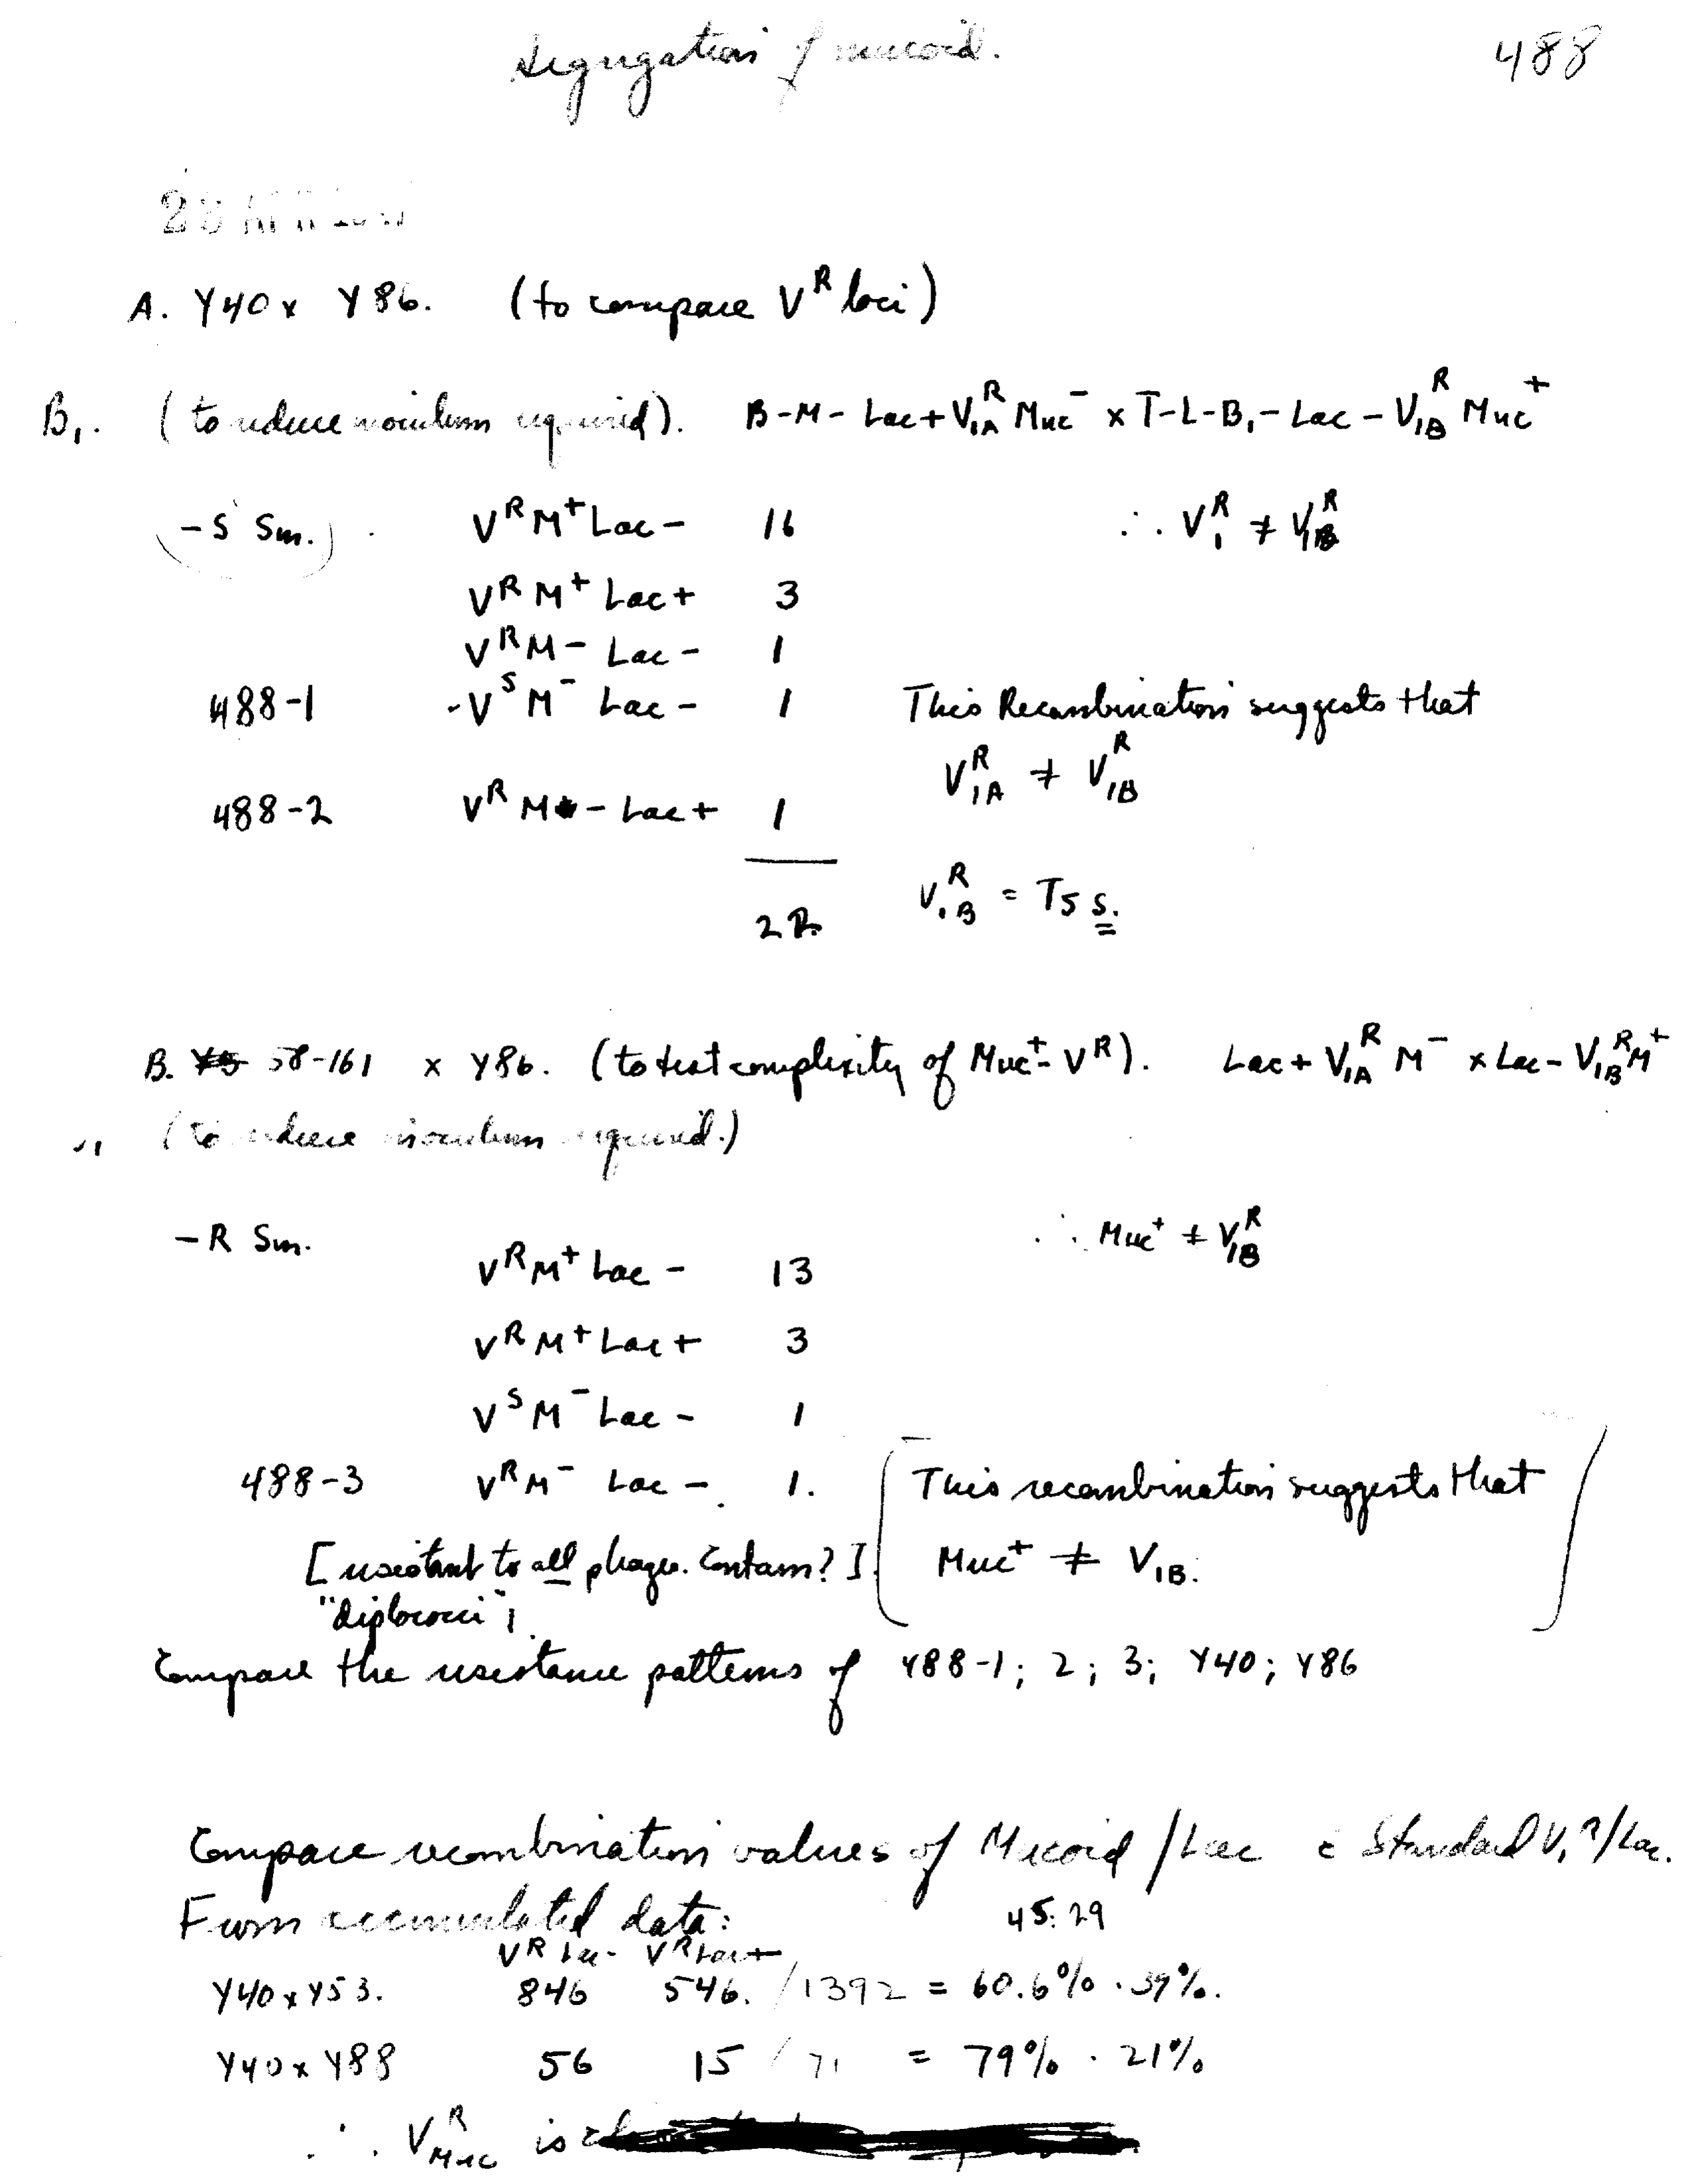 Segregation of mucoid. 488
A. Y40 x Y86. (to compare V^R loci)
B₁. (to reduce inoculum required). B-M- Lac+ V₁A^R Muc^- x T-L-B₁- Lac- V₁B^R Muc^+
-S Sm. V^R M^+ Lac- 16 ∴ V₁^R ≠ V₁B^R
V^R M^+ Lac+ 3
V^R M- Lac- 1
488-1 -V^S M^- Lac- 1 This Recombination suggests that
V₁A^R ≠ V₁B^R
488-2 V^R M- Lac+ 1
V₁B^R = T5 s.
22.
B. 58-161 x Y86. (to test complexity of Muc^+ - V^R). Lac+ V₁A^R M^- x Lac- V₁B^R M^+
(to reduce inoculum required.)
-R Sm. ∴ Muc^+ ≠ V₁B^R
V^R M^+ Lac- 13
V^R M^+ Lac+ 3
V^S M^- Lac- 1
488-3 V^R M^- Lac-. 1. This recombination suggests that
[resistant to all phages. Contam?]. Muc^+ ≠ V₁B.
"diplococci";
Compare the resistance patterns of 488-1; 2; 3; Y40; Y86
Compare recombination values of Mucoid/Lac c̄ Standard V₁^R/Lac.
From accumulated data: 45:29
V^R Lac- V^R Lac+
Y40 x Y53. 846 546. /1392 = 60.6% · 39%.
Y40 x Y88 56 15 / 71 = 79% · 21%
∴ V^R Muc is